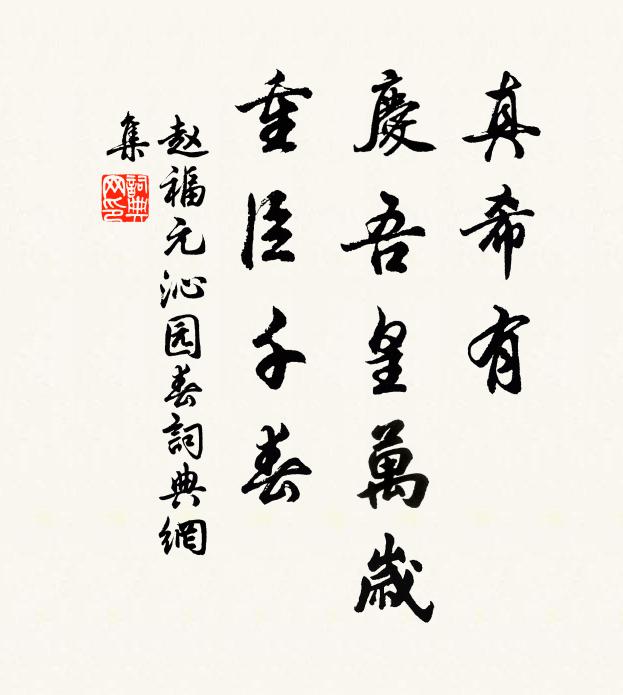 真希有
慶吾皇萬歲
重臣千春
赵福元沁园春詞典網
集
詞典
网印